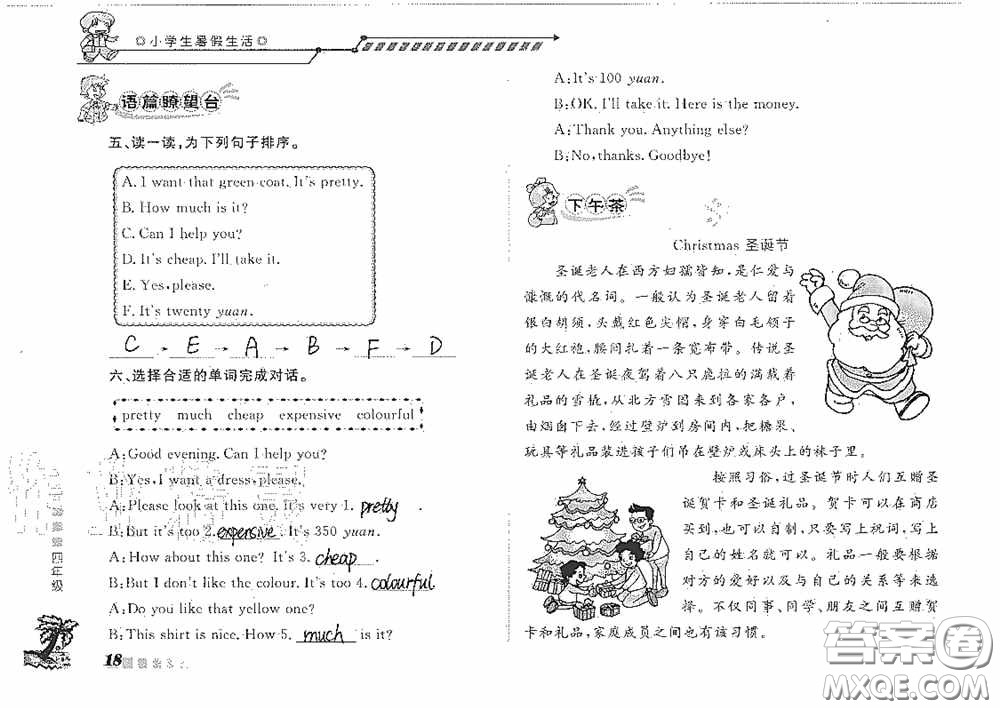 小学生暑假生活
语篇瞭望台
五、读一读，为下列句子排序。
A. I want that green coat. It's pretty.
B. How much is it?
C. Can I help you?
D. It's cheap. I'll take it.
E. Yes, please.
F. It's twenty yuan.
C → E → A → B → F → D
六、选择合适的单词完成对话。
pretty much cheap expensive colourful
A: Good evening. Can I help you?
B: Yes, I want a dress, please.
A: Please look at this one. It's very 1. pretty
B: But it's too 2. expensive. It's 350 yuan.
A: How about this one? It's 3. cheap.
B: But I don't like the colour. It's too 4. colourful
A: Do you like that yellow one?
B: This shirt is nice. How 5. much is it?
四年级
18
A: It's 100 yuan.
B: OK. I'll take it. Here is the money.
A: Thank you. Anything else?
B: No, thanks. Goodbye!
下午茶
Christmas 圣诞节
圣诞老人在西方妇孺皆知，是仁爱与
慷慨的代名词。一般认为圣诞老人留着
银白胡须，头戴红色尖帽，身穿白毛领子
的大红袍，腰间扎着一条宽布带。传说圣
诞老人在圣诞夜驾着八只鹿拉的满载着
礼品的雪橇，从北方雪国来到各家各户，
由烟囱下去，经过壁炉到房间内，把糖果、
玩具等礼品装进孩子们吊在壁炉或床头上的袜子里。
按照习俗，过圣诞节时人们互赠圣
诞贺卡和圣诞礼品。贺卡可以在商店
买到，也可以自制，只要写上祝词，写上
自己的姓名就可以了。礼品一般要根据
对方的爱好以及与自己的关系等来选
择。不仅同事、同学、朋友之间会互赠贺
卡和礼品，家庭成员之间也有该习惯。
答案圈
MXQE.COM